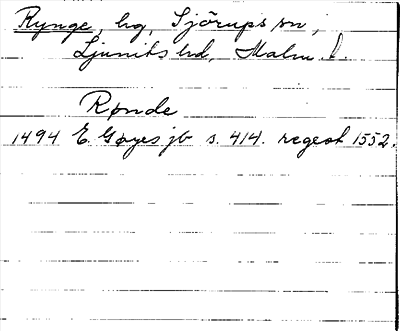 Rynge, hg, Sjörups sn,
Ljunits hd, Malm. l.
Rønde
1494 E. Gøyes jb s. 414. regest 1552.